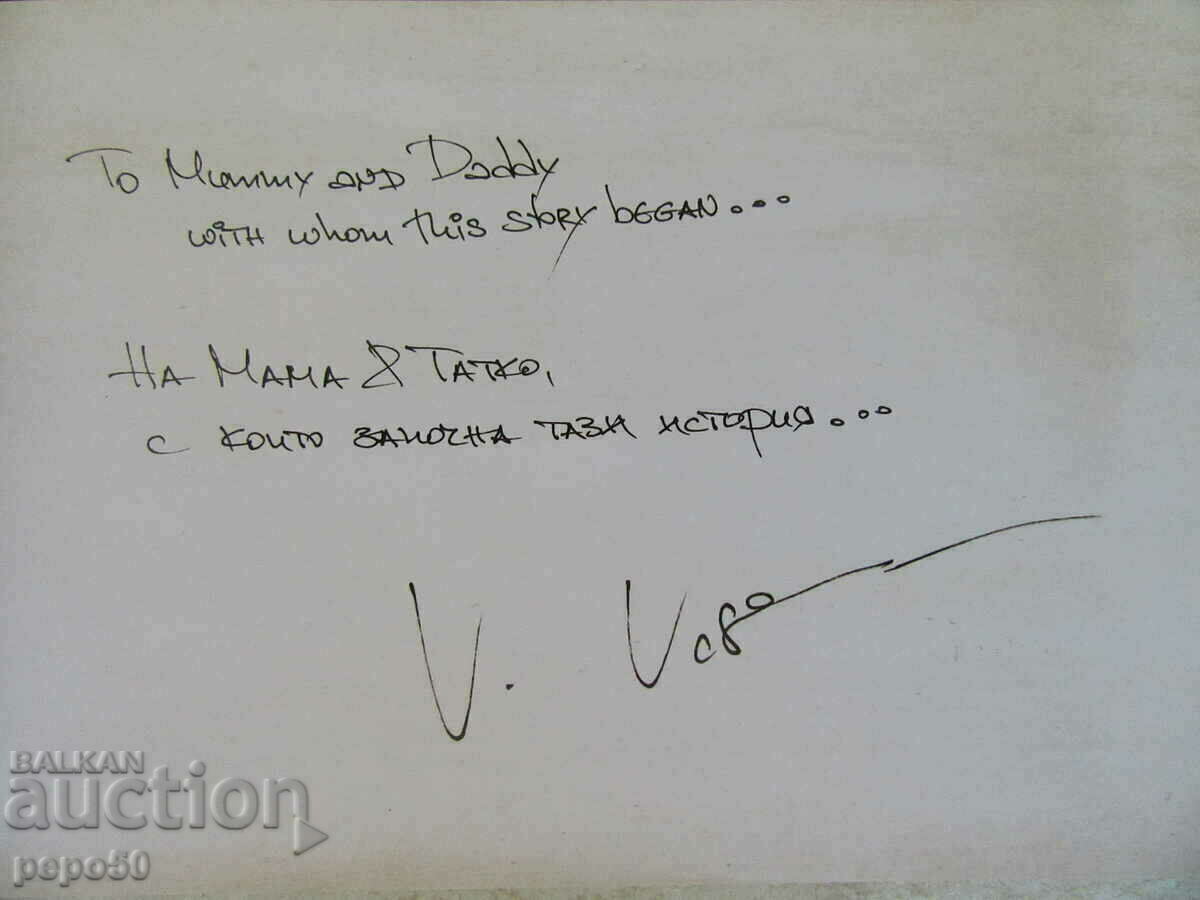 To Mummy and Daddy
with whom this story began...
На Мама & Татко,
с които започна тази история...
BALKAN
auction
pepo50